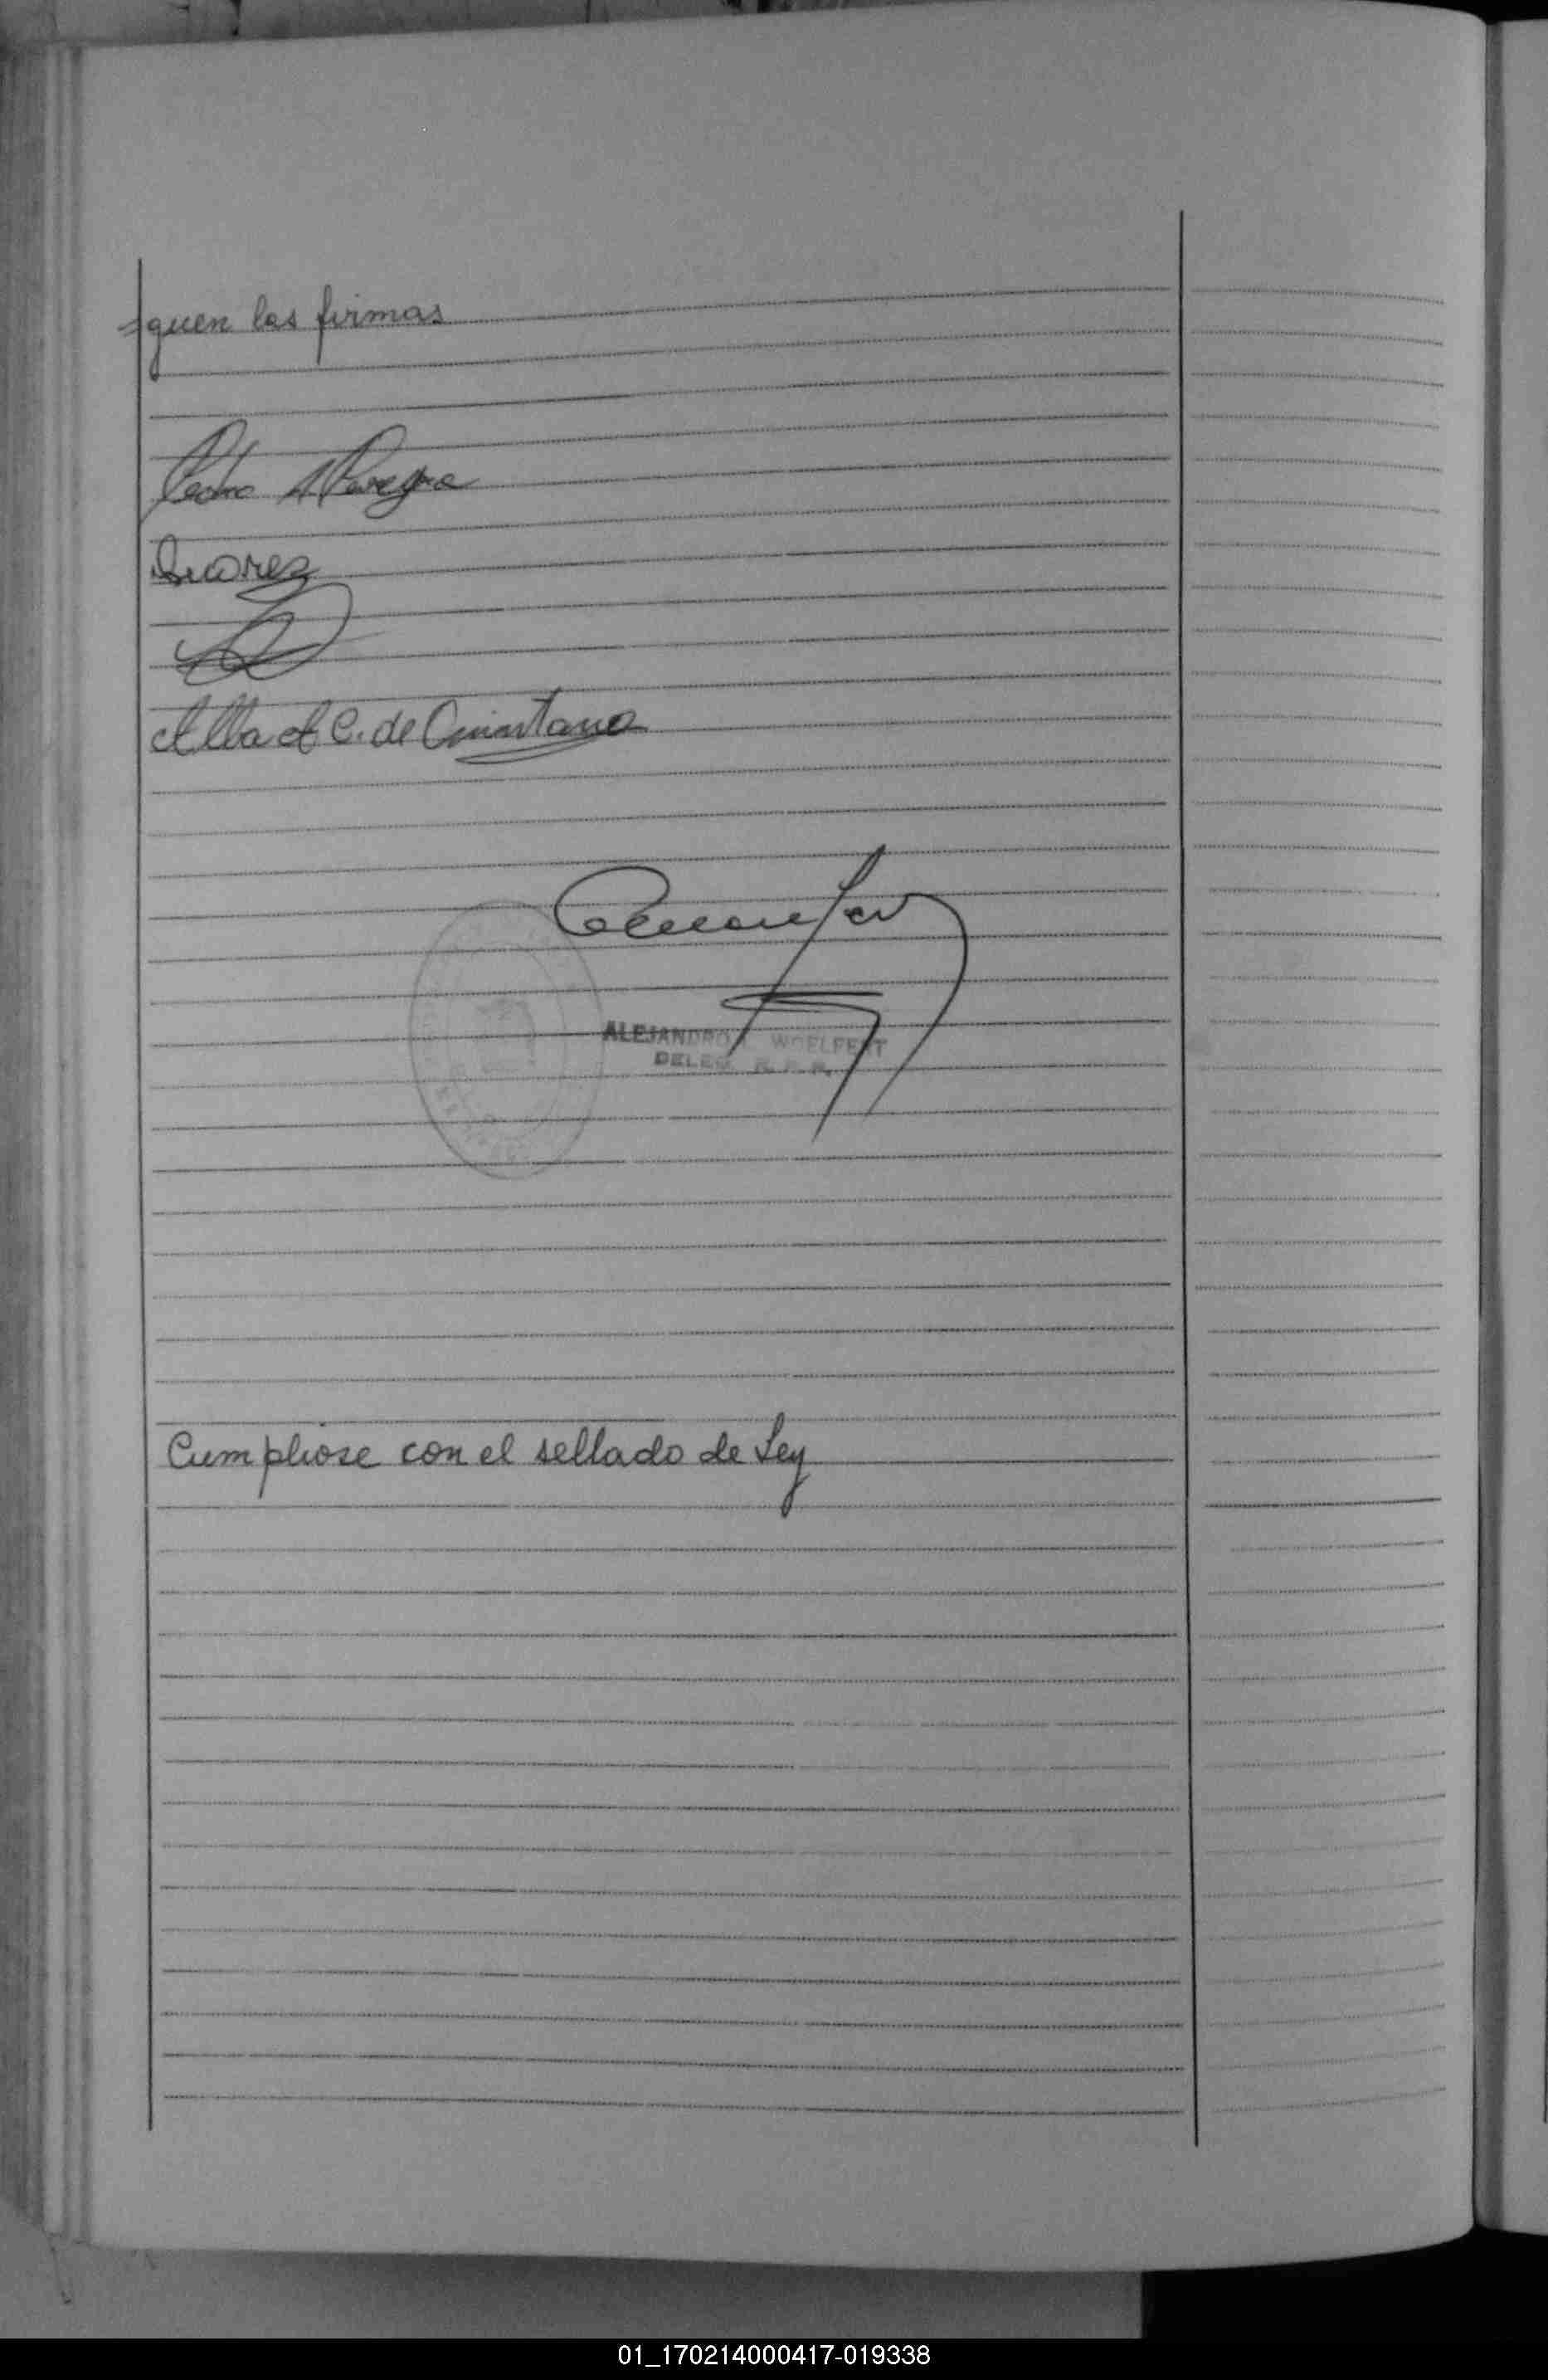 =guen las firmas
Pedro A
Suarez
Alba A C. de Quintana
ALEJANDRO WOELFERT
DELEG. R. P. R.
Cumpliose con el sellado de Ley
01_170214000417-019338